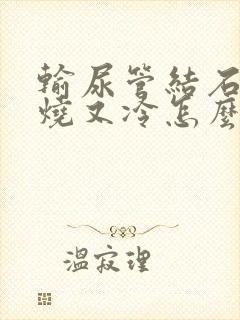 輸尿管結石
燒又冷怎麼
溫寂理